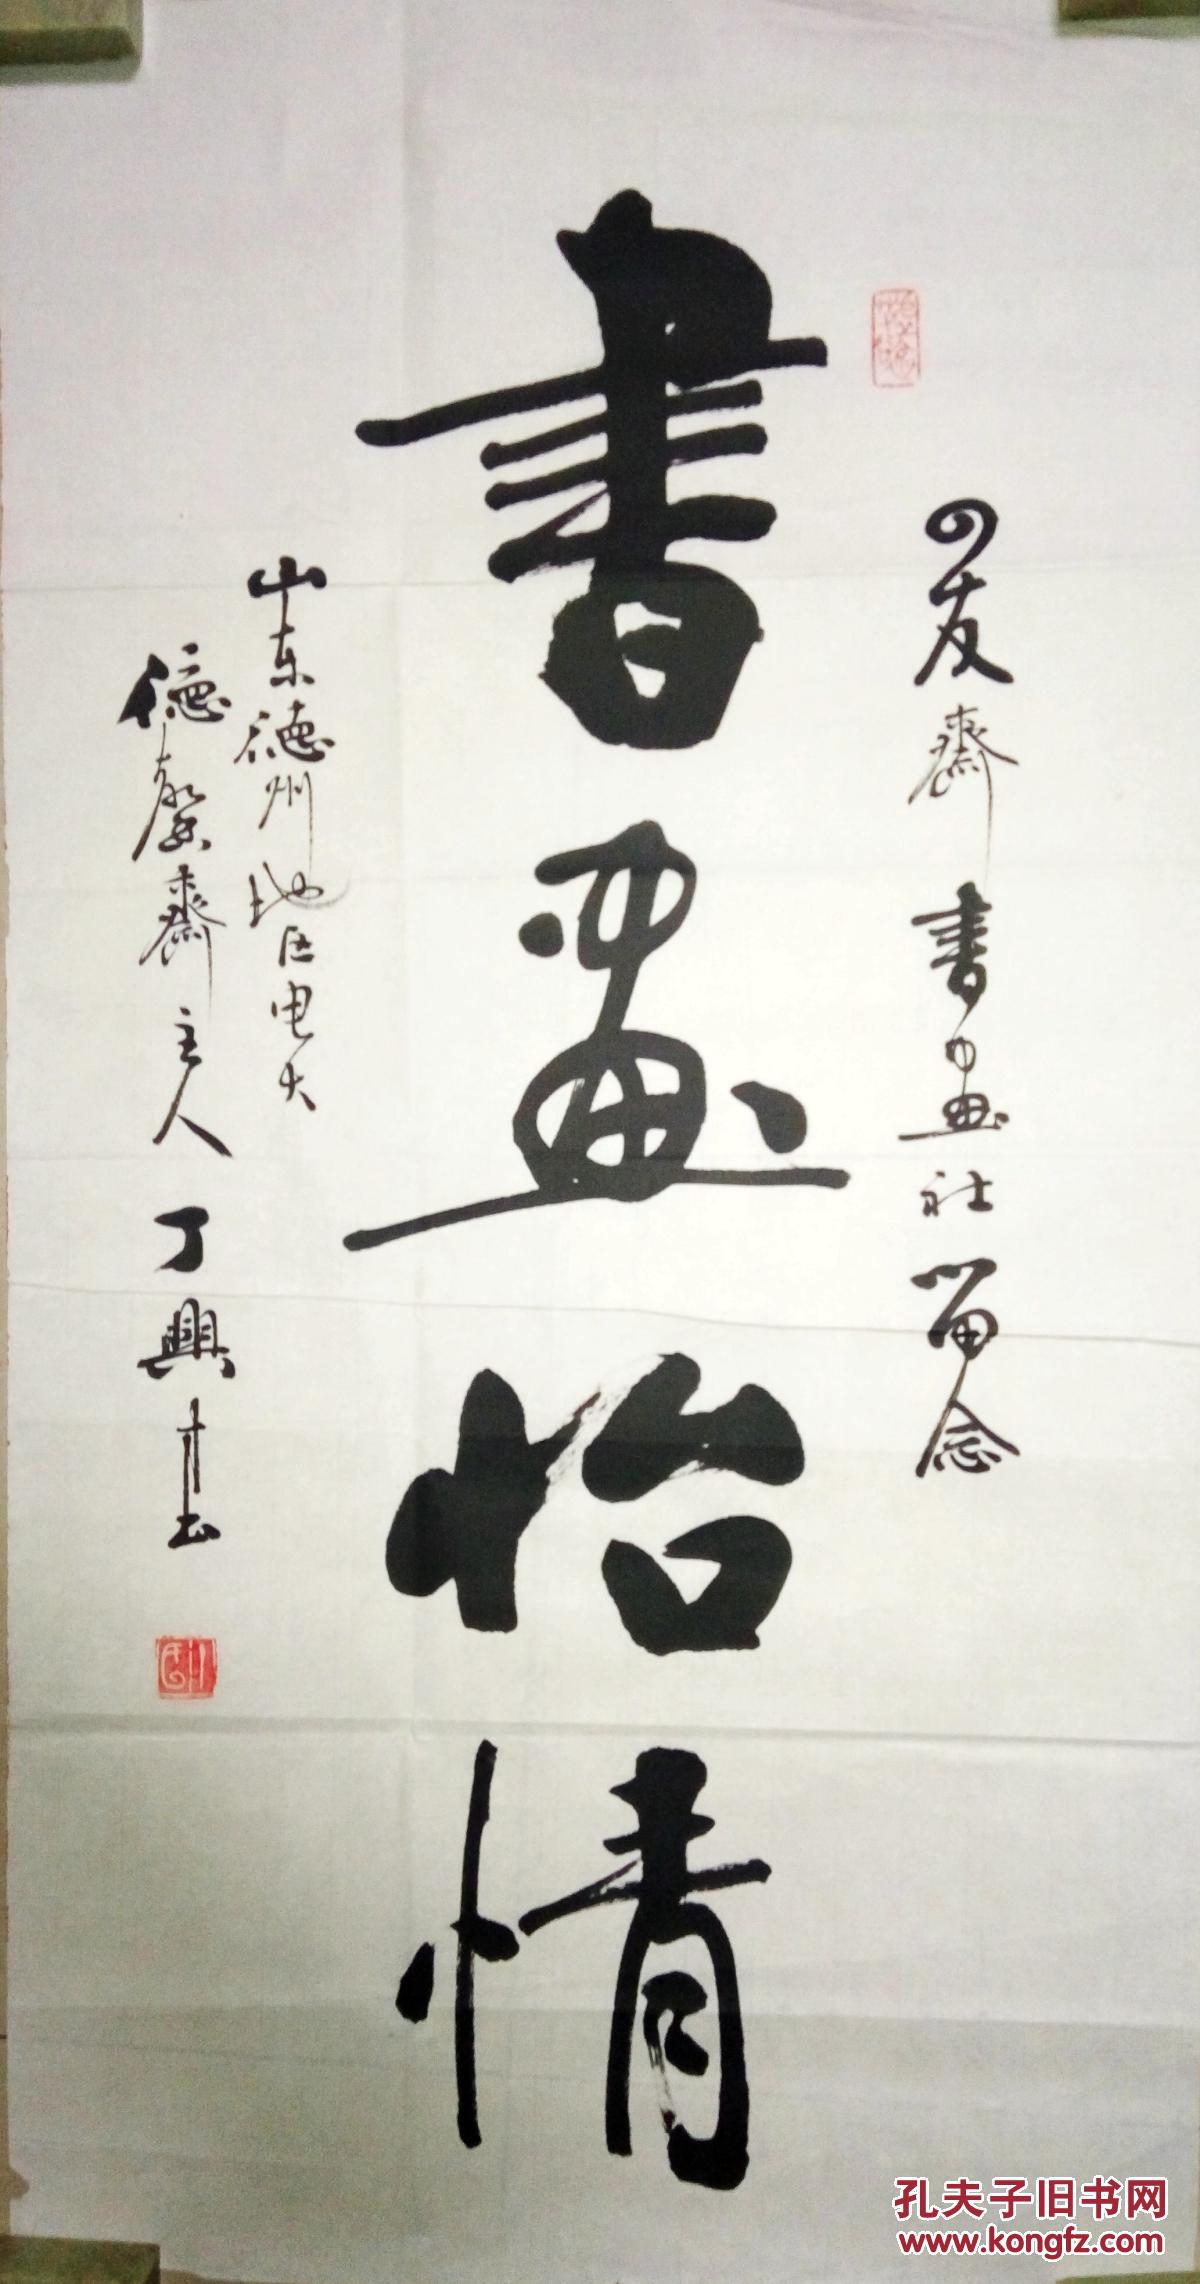 四友齋書画社留念
書画怡情
山东德州地区电大
德馨齋主人丁興
孔夫子旧书网
www.kongfz.com